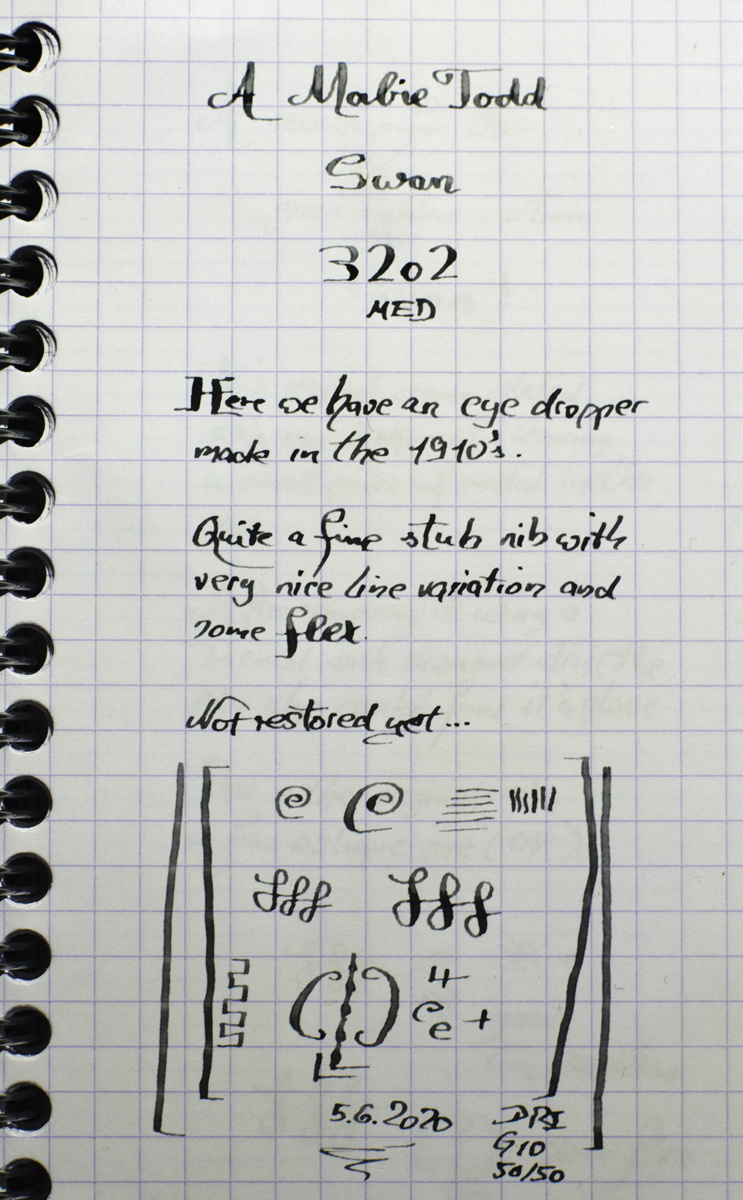 A Mabie Todd
Swan
3202
MED
Here we have an eye dropper
made in the 1910's.
Quite a fine stub nib with
very nice line variation and
some flex.
Not restored yet...
e e
fff fff
4
e e +
5.6.2020 DRI
G10
50/50